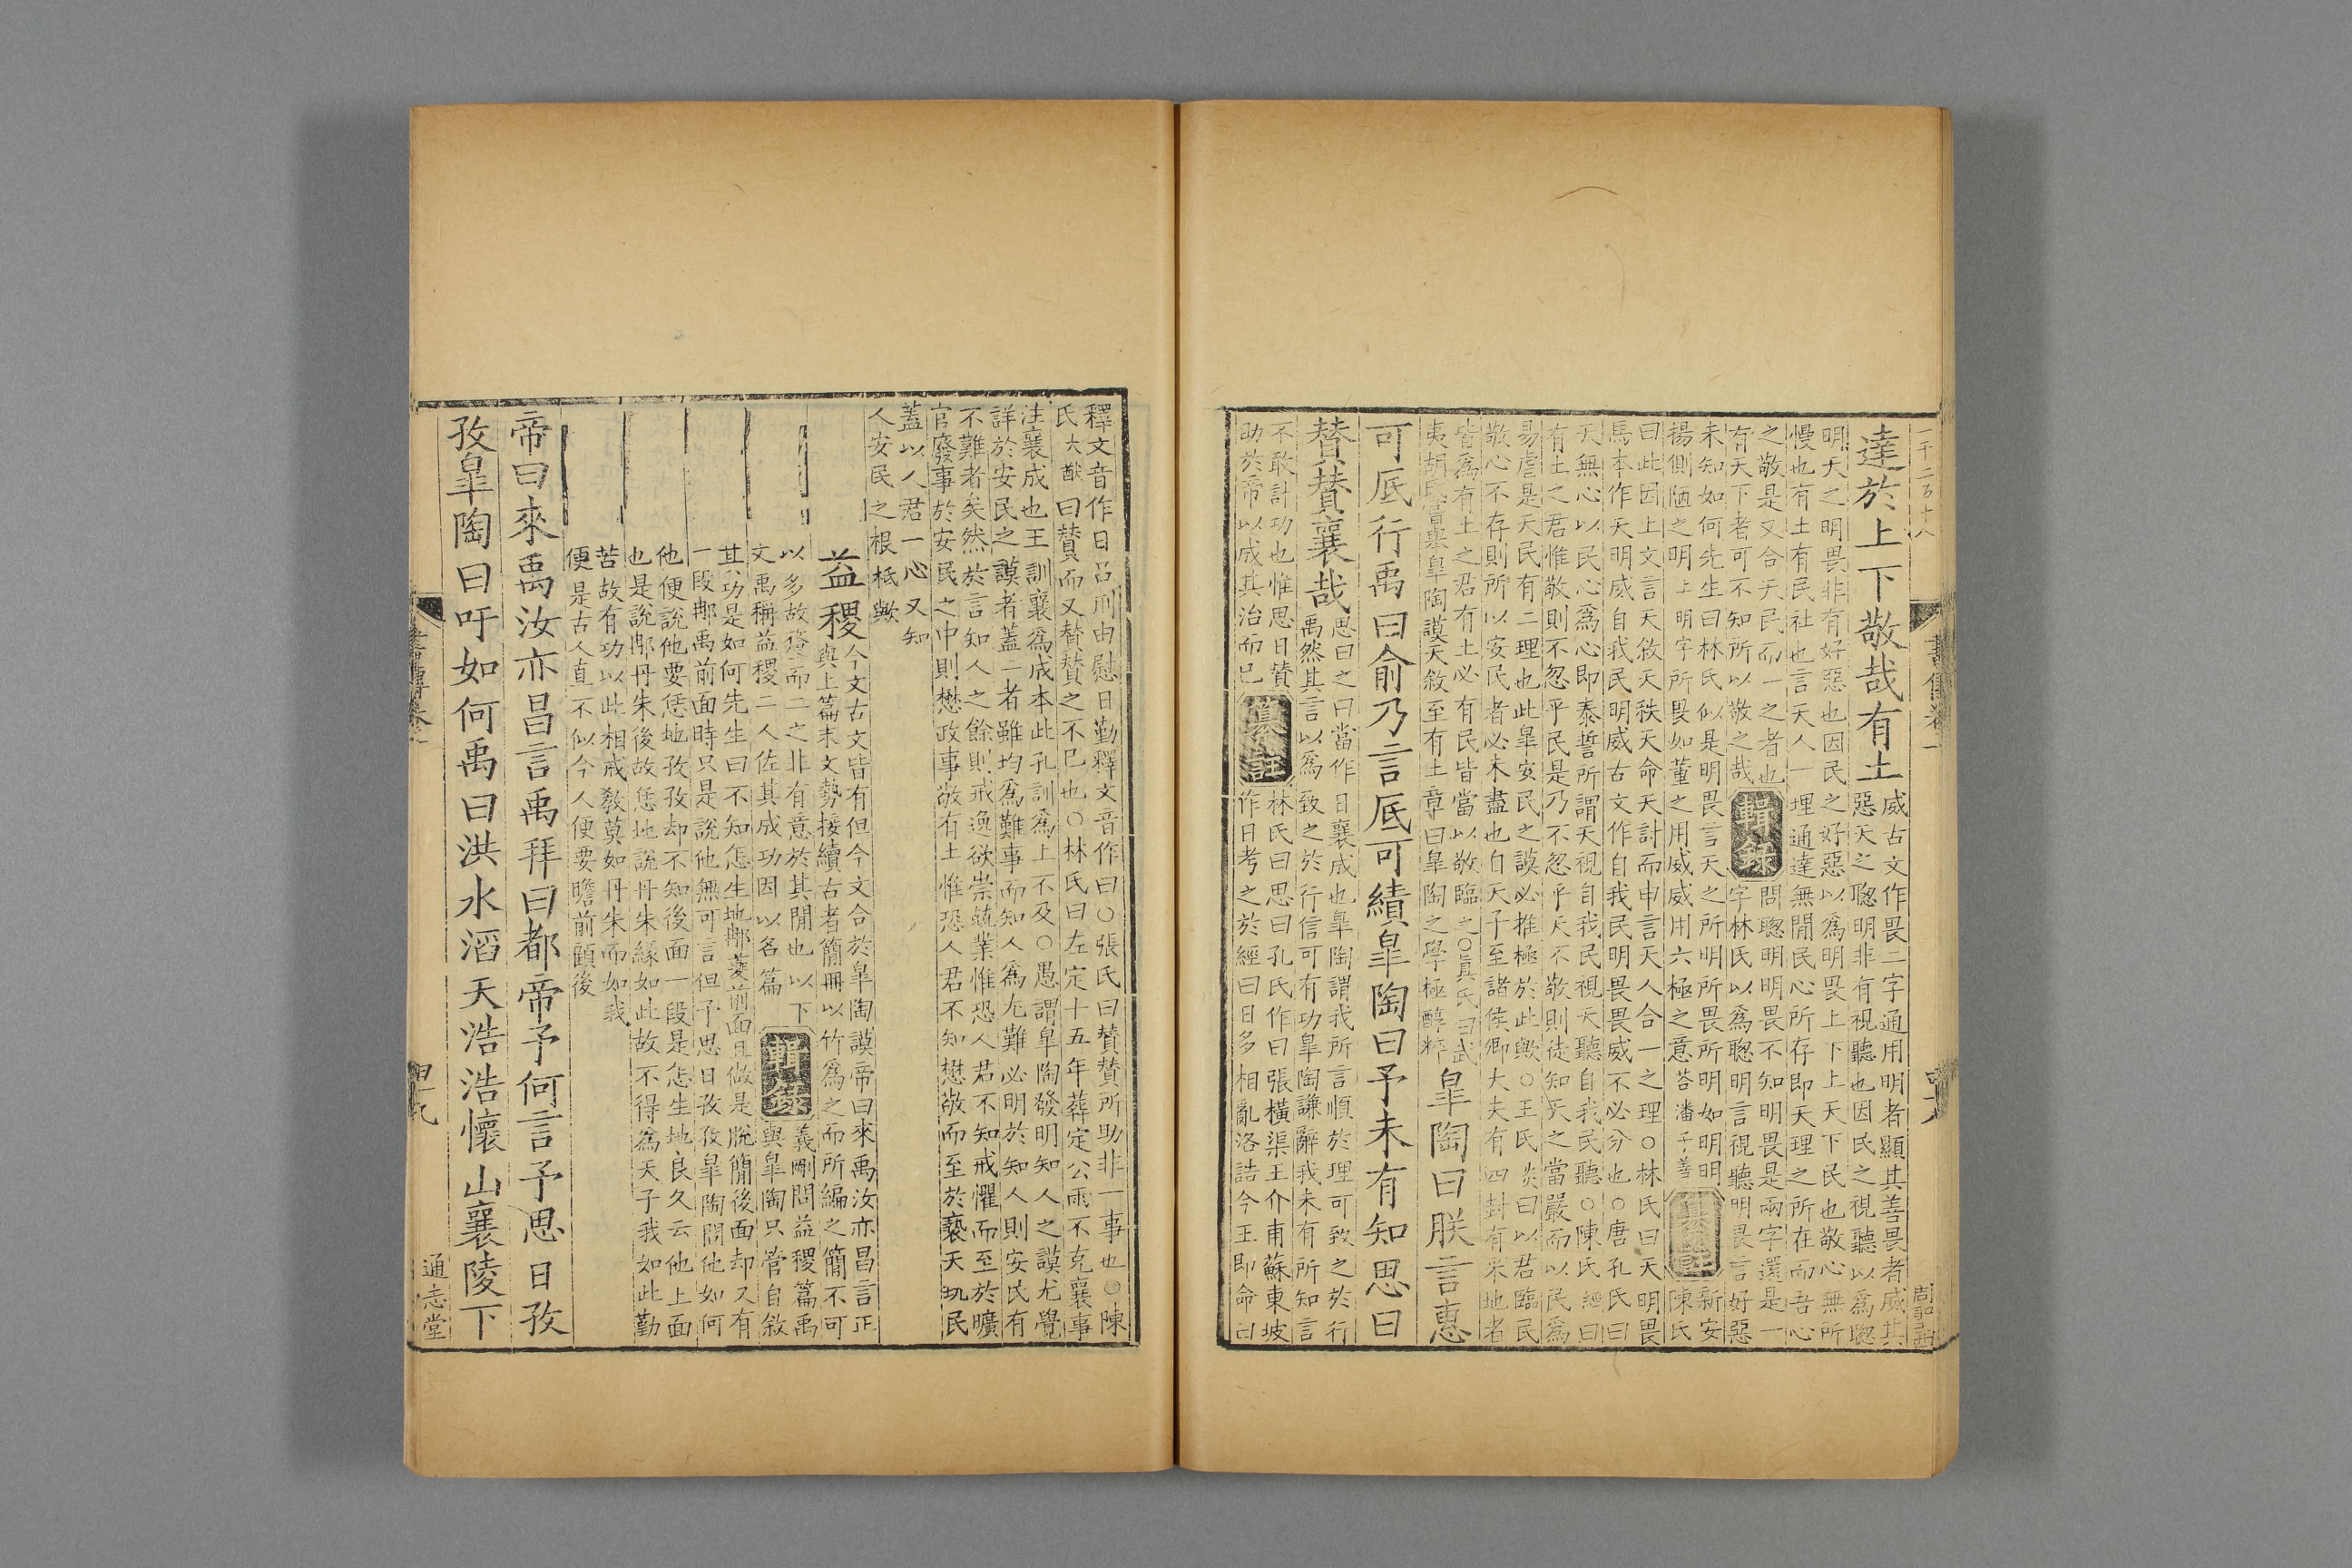 一千二百十八
書傳卷一
達於上下敬哉有土
威古文作畏二字通用明者顯其善畏者威其
惡天之聰明非有視聽也因民之視聽以爲聰
明天之明畏非有好惡也因民之好惡以爲明畏上下上天下民也敬心無所
慢也有土有民社也言天人一理通達無閒民心所存即天理之所在而吾心
之敬是又合天民而一之者也
有天下者可不知所以敬之哉
輯錄
問聰明明畏不知明畏是兩字還是一
字林氏以爲聰明言視聽明畏言好惡
未知如何先生曰林氏似是明畏言天之所明所畏所明如明明
揚側陋之明上明字所畏如董之用威威用六極之意答潘子善
纂註
新安
陳氏
曰此因上文言天敘天秩天命天討而申言天人合一之理○林氏曰天明畏
馬本作天明威自我民明威古文作自我民明畏畏威不必分也○唐孔氏曰
天無心以民心爲心即泰誓所謂天視自我民視天聽自我民聽○陳氏經曰
有土之君惟敬則不忽乎民是乃不忽乎天不敬則徒知天之當嚴而以民爲
易虐是天民有二理也此皐安民之謨必推極於此歟○王氏炎曰以君臨民
敬心不存則所以安民者必未盡也自天子至諸侯卿大夫有四封有采地者
皆爲有土之君有土必有民皆當以敬臨之○眞氏曰武
夷胡氏嘗舉皐陶謨天敘至有土章曰皐陶之學極醇粹
皐陶曰朕言惠
可厎行禹曰俞乃言厎可績皐陶曰予未有知思曰
贊贊襄哉
思曰之曰當作日襄成也皐陶謂我所言順於理可致之於行
禹然其言以爲致之於行信可有功皐陶謙辭我未有所知言
不敢計功也惟思日贊
助於帝以成其治而已
纂註
林氏曰思曰孔氏作曰張橫渠王介甫蘇東坡
作日考之於經曰日多相亂洛誥今王即命曰
釋文音作日呂刑由慰日勤釋文音作曰○張氏曰贊贊所助非一事也○陳
氏大猷曰贊而又贊贊之不已也○林氏曰左定十五年葬定公雨不克襄事
注襄成也王訓襄爲成本此孔訓爲上不及○愚謂皐陶發明知人之謨尤覺
詳於安民之謨者蓋二者雖均爲難事而知人爲尤難必明於知人則安民有
不難者矣然於言知人之餘則戒逸欲崇兢業惟恐人君不知戒懼而至於曠
官廢事於安民之中則懋政事敬有土惟恐人君不知懋敬而至於褻天玩民
蓋以人君一心又知
人安民之根柢歟
益稷
今文古文皆有但今文合於皐陶謨帝曰來禹汝亦昌言正
與上篇末文勢接續古者簡冊以竹爲之而所編之簡不可
以多故釐而二之非有意於其閒也以下
文禹稱益稷二人佐其成功因以名篇
輯錄
義剛問益稷篇禹
與皐陶只管自敘
其功是如何先生曰不知怎生地那夔前面且做是脫簡後面却又有
一段那禹前面時只是說他無可言但予思日孜孜皐陶問他如何
他便說他要恁地孜孜却不知後面一段是怎生地良久云他上面
也是說那丹朱後故恁地說丹朱緣如此故不得爲天子我如此勤
苦故有功以此相戒敎莫如丹朱而如我
便是古人直不似今人便要瞻前顧後
帝曰來禹汝亦昌言禹拜曰都帝予何言予思日孜
孜皐陶曰吁如何禹曰洪水滔天浩浩懷山襄陵下
通志堂